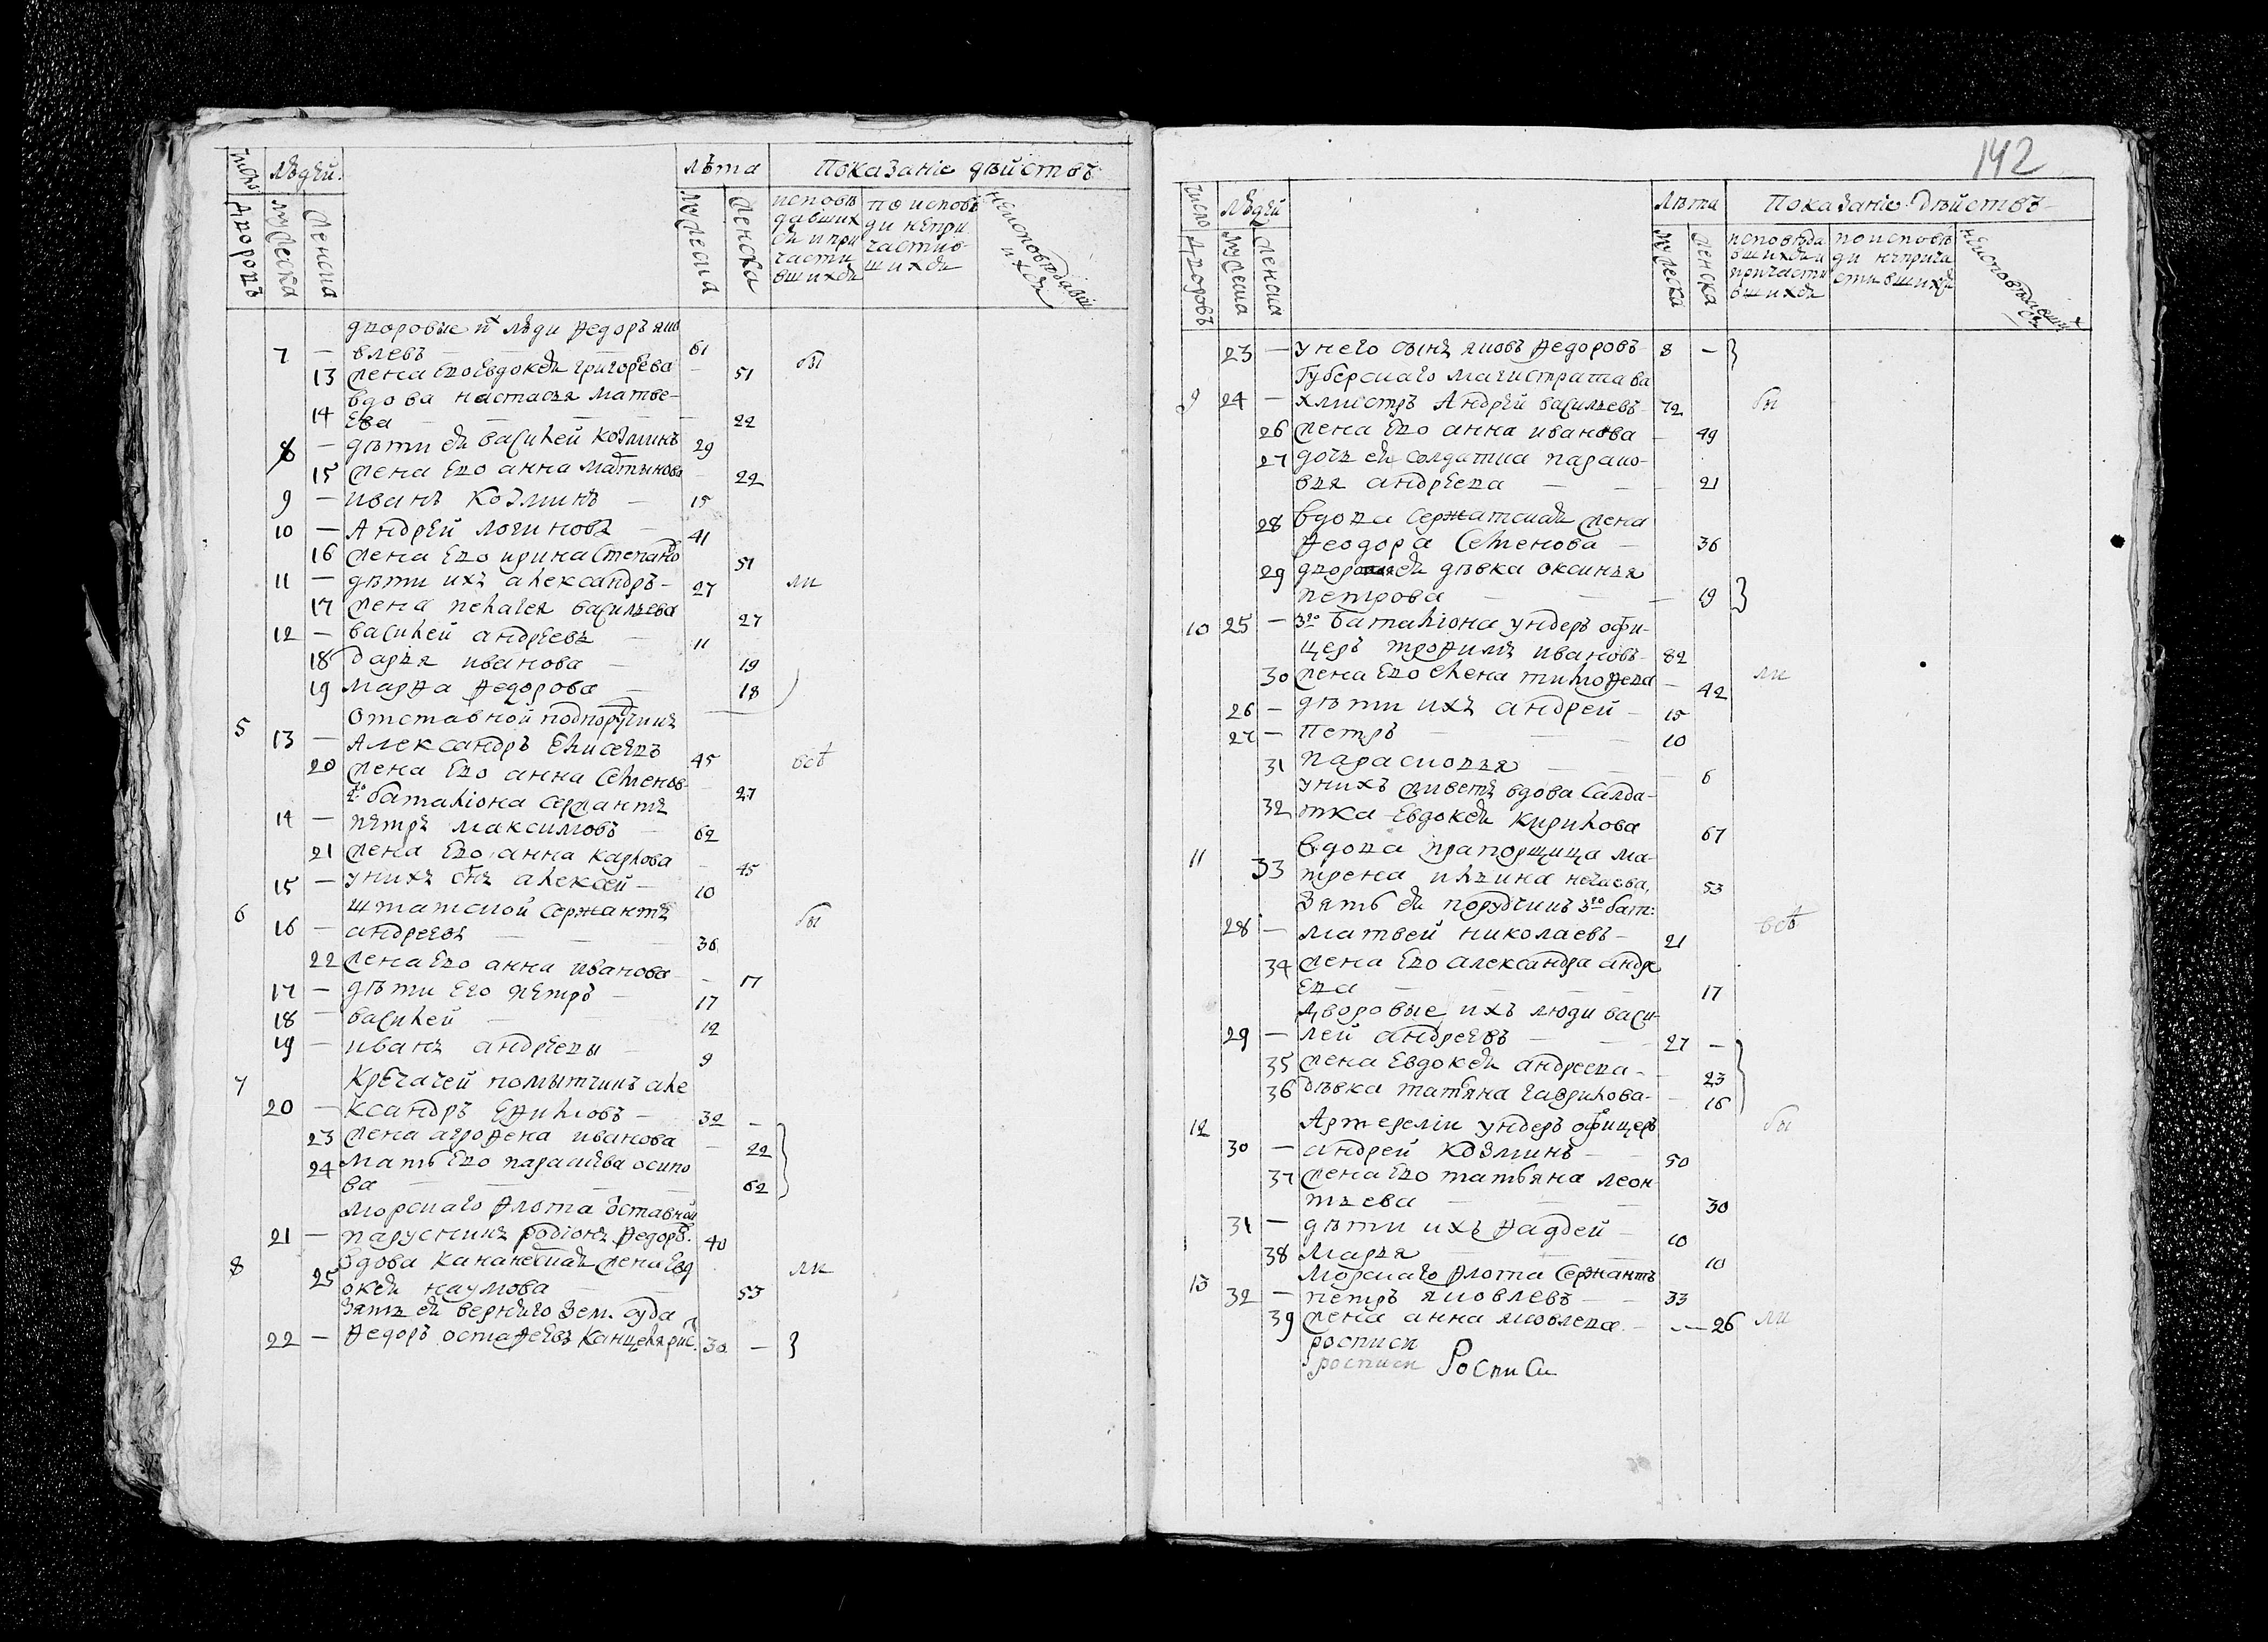 число лѣдей лѣта Показаніе дѣйствъ
дворовъ мужеска женска мужеска женска исповѣдавшихся и причастившихся по исповѣди непричастившихся неисповѣдавшихся
дворовые ихъ лѣди Ѳедоръ яко
7 — влевъ — 61 бы
13 жена его Евдокея григорьева — 51
вдова настасья матве-
14 Ева — — — 22
8 — дѣти ея василей козминъ 29
15 жена его анна мартынова — 22
9 — иванъ козминъ — 15
10 — Андрей логиновъ — 41
16 жена его ирина степано 51
11 — дѣти ихъ александръ — 27 ли
17 жена пелагея васильева 27
12 — василей андреевъ — 11
18 дарья иванова — 19
19 марѳа ѳедорова — 18
5 отставной подпоручикъ
13 — Александръ Елисеевъ 45 всѣ
20 жена его анна семенов- 27
2го баталіона сержантъ
14 — петръ максимовъ — 62
21 жена его анна карпова — 45
15 — унихъ снъ алексей — 10
6 штатской сержантъ бы
16 — андреевъ — — 36
22 жена его анна иванова — 17
17 — дѣти его петръ — 17
18 — василей — 12
19 — иванъ андреевы — 9
7 Кречачей помытчикъ але
20 — ксандръ — 32 —
23 жена агроѳена иванова — 22
24 мать его параскева осипо
ва — — — 62
морскаго ѳлота отставной
21 — парусникъ родіонъ ѳедоръ. 40
8 вдова жена Евд ли
25 окея наумова — 53
зять ея верхняго зем. суда
22 — Ѳедоръ остаѳеевъ канцеляриc. 30 — }
142
число лѣдей лѣта Показаніе дѣйствъ
дворовъ мужеска женска мужеска женска исповѣдавшихся и причастившихся по исповѣди непричастившихся неисповѣдавшихся
23 — унего сынъ яковъ ѳедоровъ 8 — }
Губерскаго магистрата ва
9 24 — хмистръ Андрей васильевъ 72 бы
26 жена его анна иванова — 49
27 дочь ея солдатка параско-
вья андреева — — 21
28 вдова сержатская жена
Ѳеодора Семенова — 36
29 дѣвка оксинья
петрова — — — 19 }
10 25 — 3го баталіона ундеръ офи-
церъ троѳимъ ивановъ 82
30 жена его елена тимоѳева — 42 ли
26 — дѣти ихъ андрей — 15
27 — Петръ — — — 10
31 парасковья — — — 6
унихъ живетъ вдова салда-
32 тка Евдокея кирилова 67
11 вдова прапорщица ма-
33 трена ильина нечаева, 53
Зять ея порутчикъ 3го бат:
28 — матвей николаевъ — 21 всѣ
34 жена его александра андре
ева — — — 17
дворовые ихъ люди васи-
29 — лей андреевъ — — 27 —
35 жена Евдокея андреева — 23
36 дѣвка татьяна гаврилова — 16
12 Артелеріи ундеръ офицеръ бы
30 — андрей козминъ — — 50
37 жена его татьяна леон-
тьева — — 30
31 — дѣти ихъ ѳадѣей — 10
38 марья — — — 10
13 Морскаго ѳлота сержантъ
32 — петръ яковлевъ — — 33
39 жена анна яковлева — — 26 ли
росписи
росписи Росписи